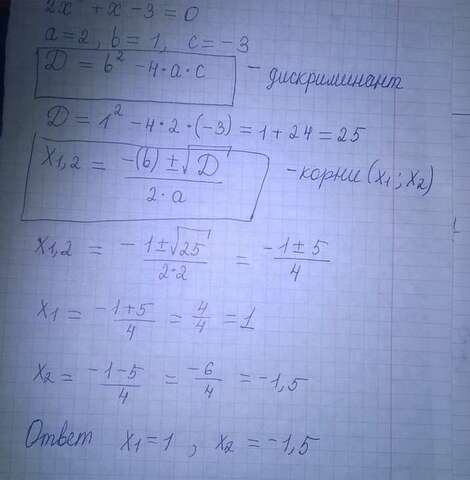 2x² + x - 3 = 0
a = 2, b = 1, c = -3
D = b² - 4·a·c - дискриминант
D = 1² - 4·2·(-3) = 1 + 24 = 25
x₁,₂ = (-(b) ± √D) / (2·a) - корни (x₁; x₂)
x₁,₂ = (-1 ± √25) / (2·2) = (-1 ± 5) / 4
x₁ = (-1+5) / 4 = 4/4 = 1
x₂ = (-1-5) / 4 = -6/4 = -1,5
Ответ x₁ = 1, x₂ = -1,5